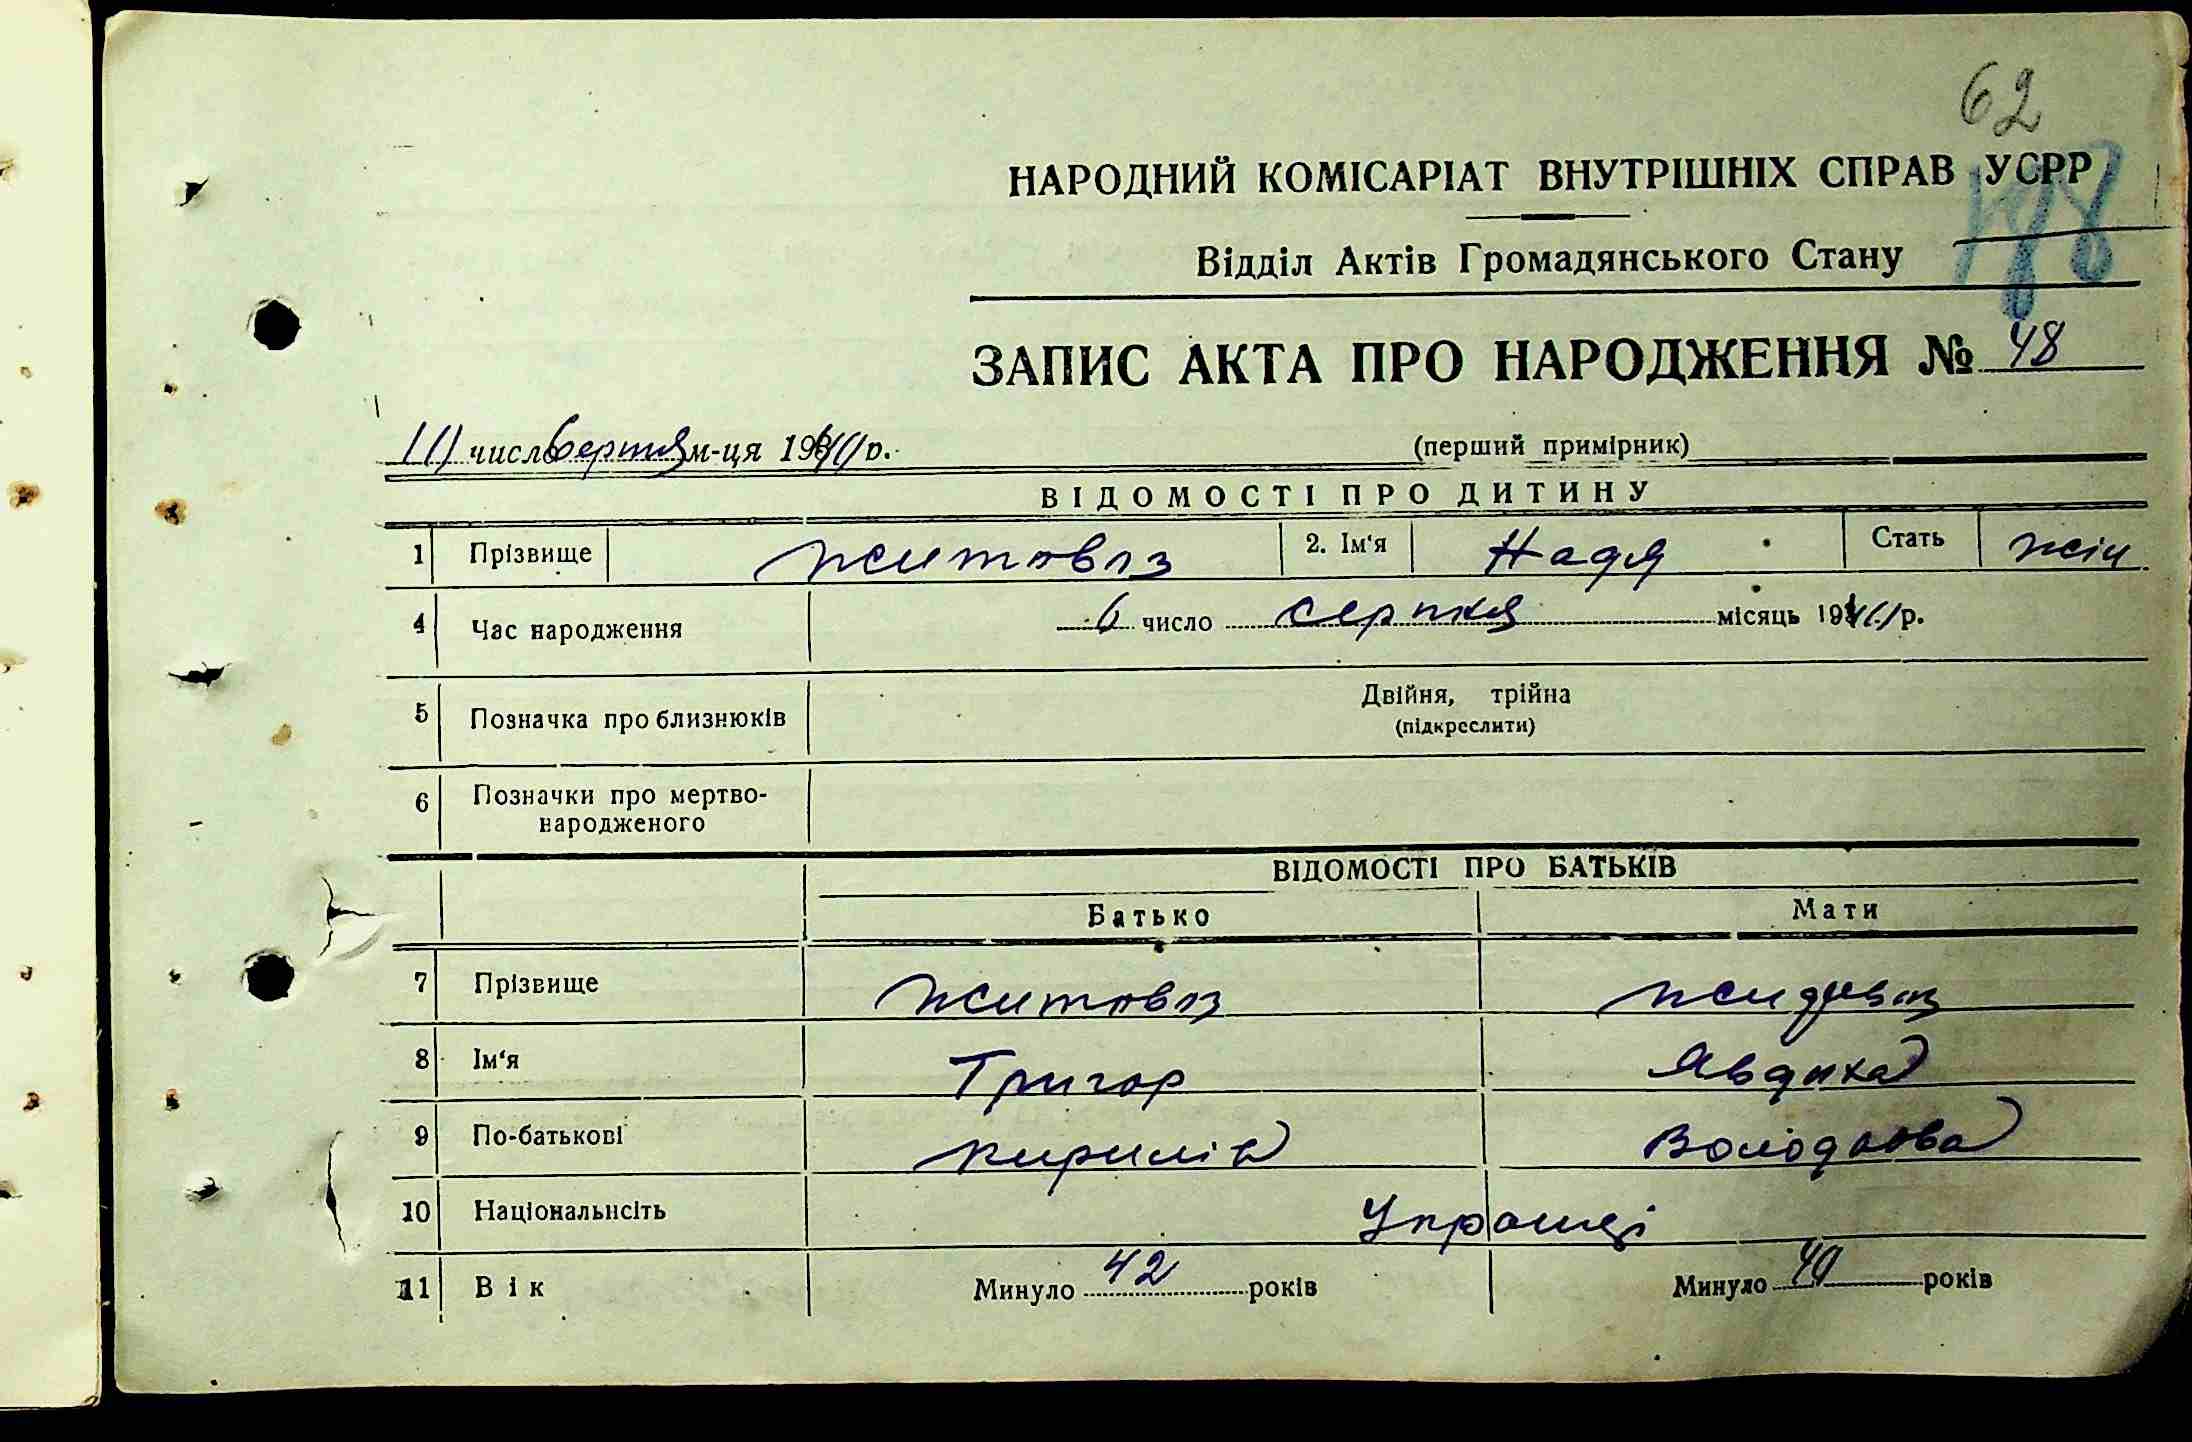 62
НАРОДНИЙ КОМІСАРІАТ ВНУТРІШНІХ СПРАВ УСРР
Відділ Актів Громадянського Стану
ЗАПИС АКТА ПРО НАРОДЖЕННЯ № 48
число м-ця р.
(перший примірник)
ВІДОМОСТІ ПРО ДИТИНУ
1 Прізвище 2. Ім‘я Надя Стать жін
4 Час народження 6 число серпня місяць р.
5 Позначка про близнюків Двійня, трійна
(підкреслити)
6 Позначки про мертво-
народженого
ВІДОМОСТІ ПРО БАТЬКІВ
Батько Мати
7 Прізвище
8 Ім‘я Григор Явдиха
9 По-батькові Кирилів
10 Національнсіть
11 Вік Минуло 42 років Минуло 40 років